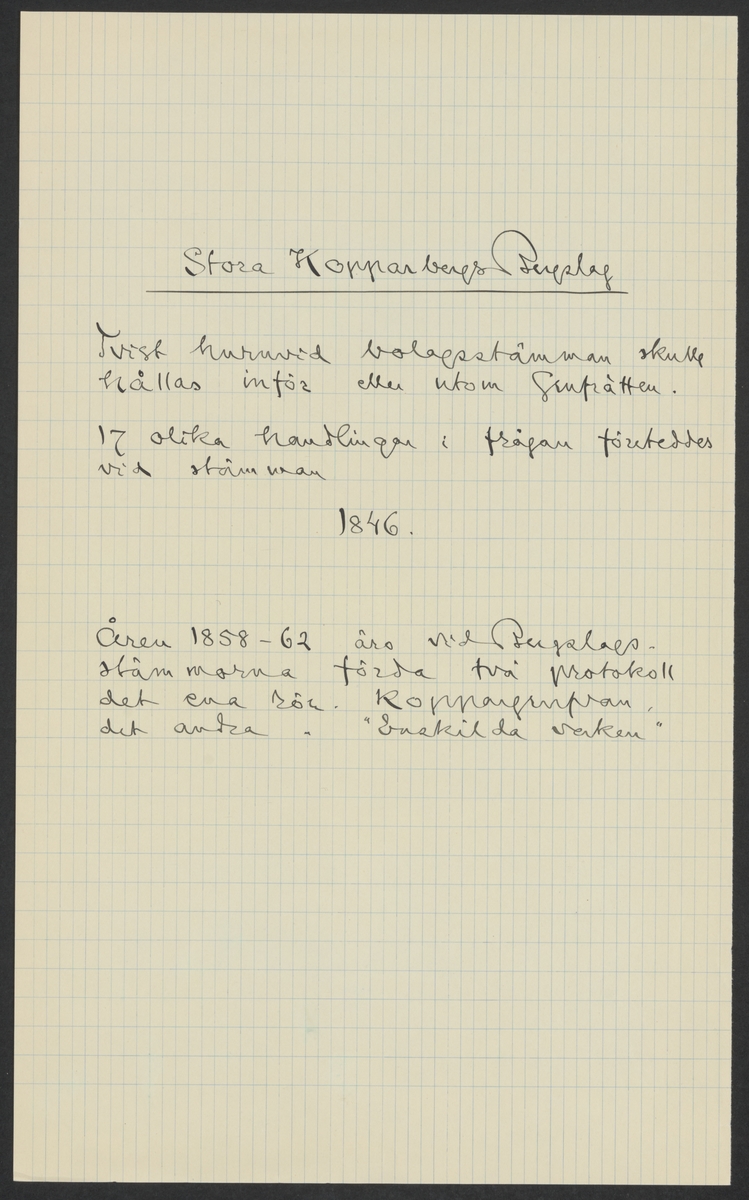 Stora Kopparbergs Bergslag
Tvist huruvid bolagsstämman skulle
hållas inför eller utom Grufrätten.
17 olika handlingar i frågan företeddes
vid stämman
1846.
Åren 1858-62 äro vid Bergslags-
stämmorna förda två protokoll
det ena rör. Koppargrufvan,
det andra " "Enskilda verken"